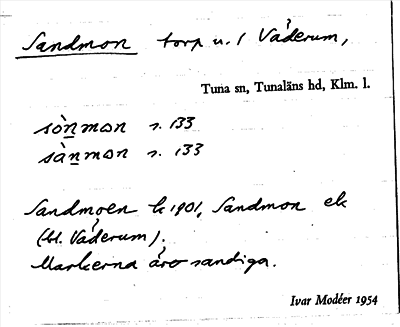 Sandmon torp u. 1 Väderum,
Tuna sn, Tunaläns hd, Klm. l.
sònmon s. 133
sànmon s. 133
Sandmoen k 1901, Sandmon ek
(bl. Väderum).
Markerna äro sandiga.
Ivar Modéer 1954